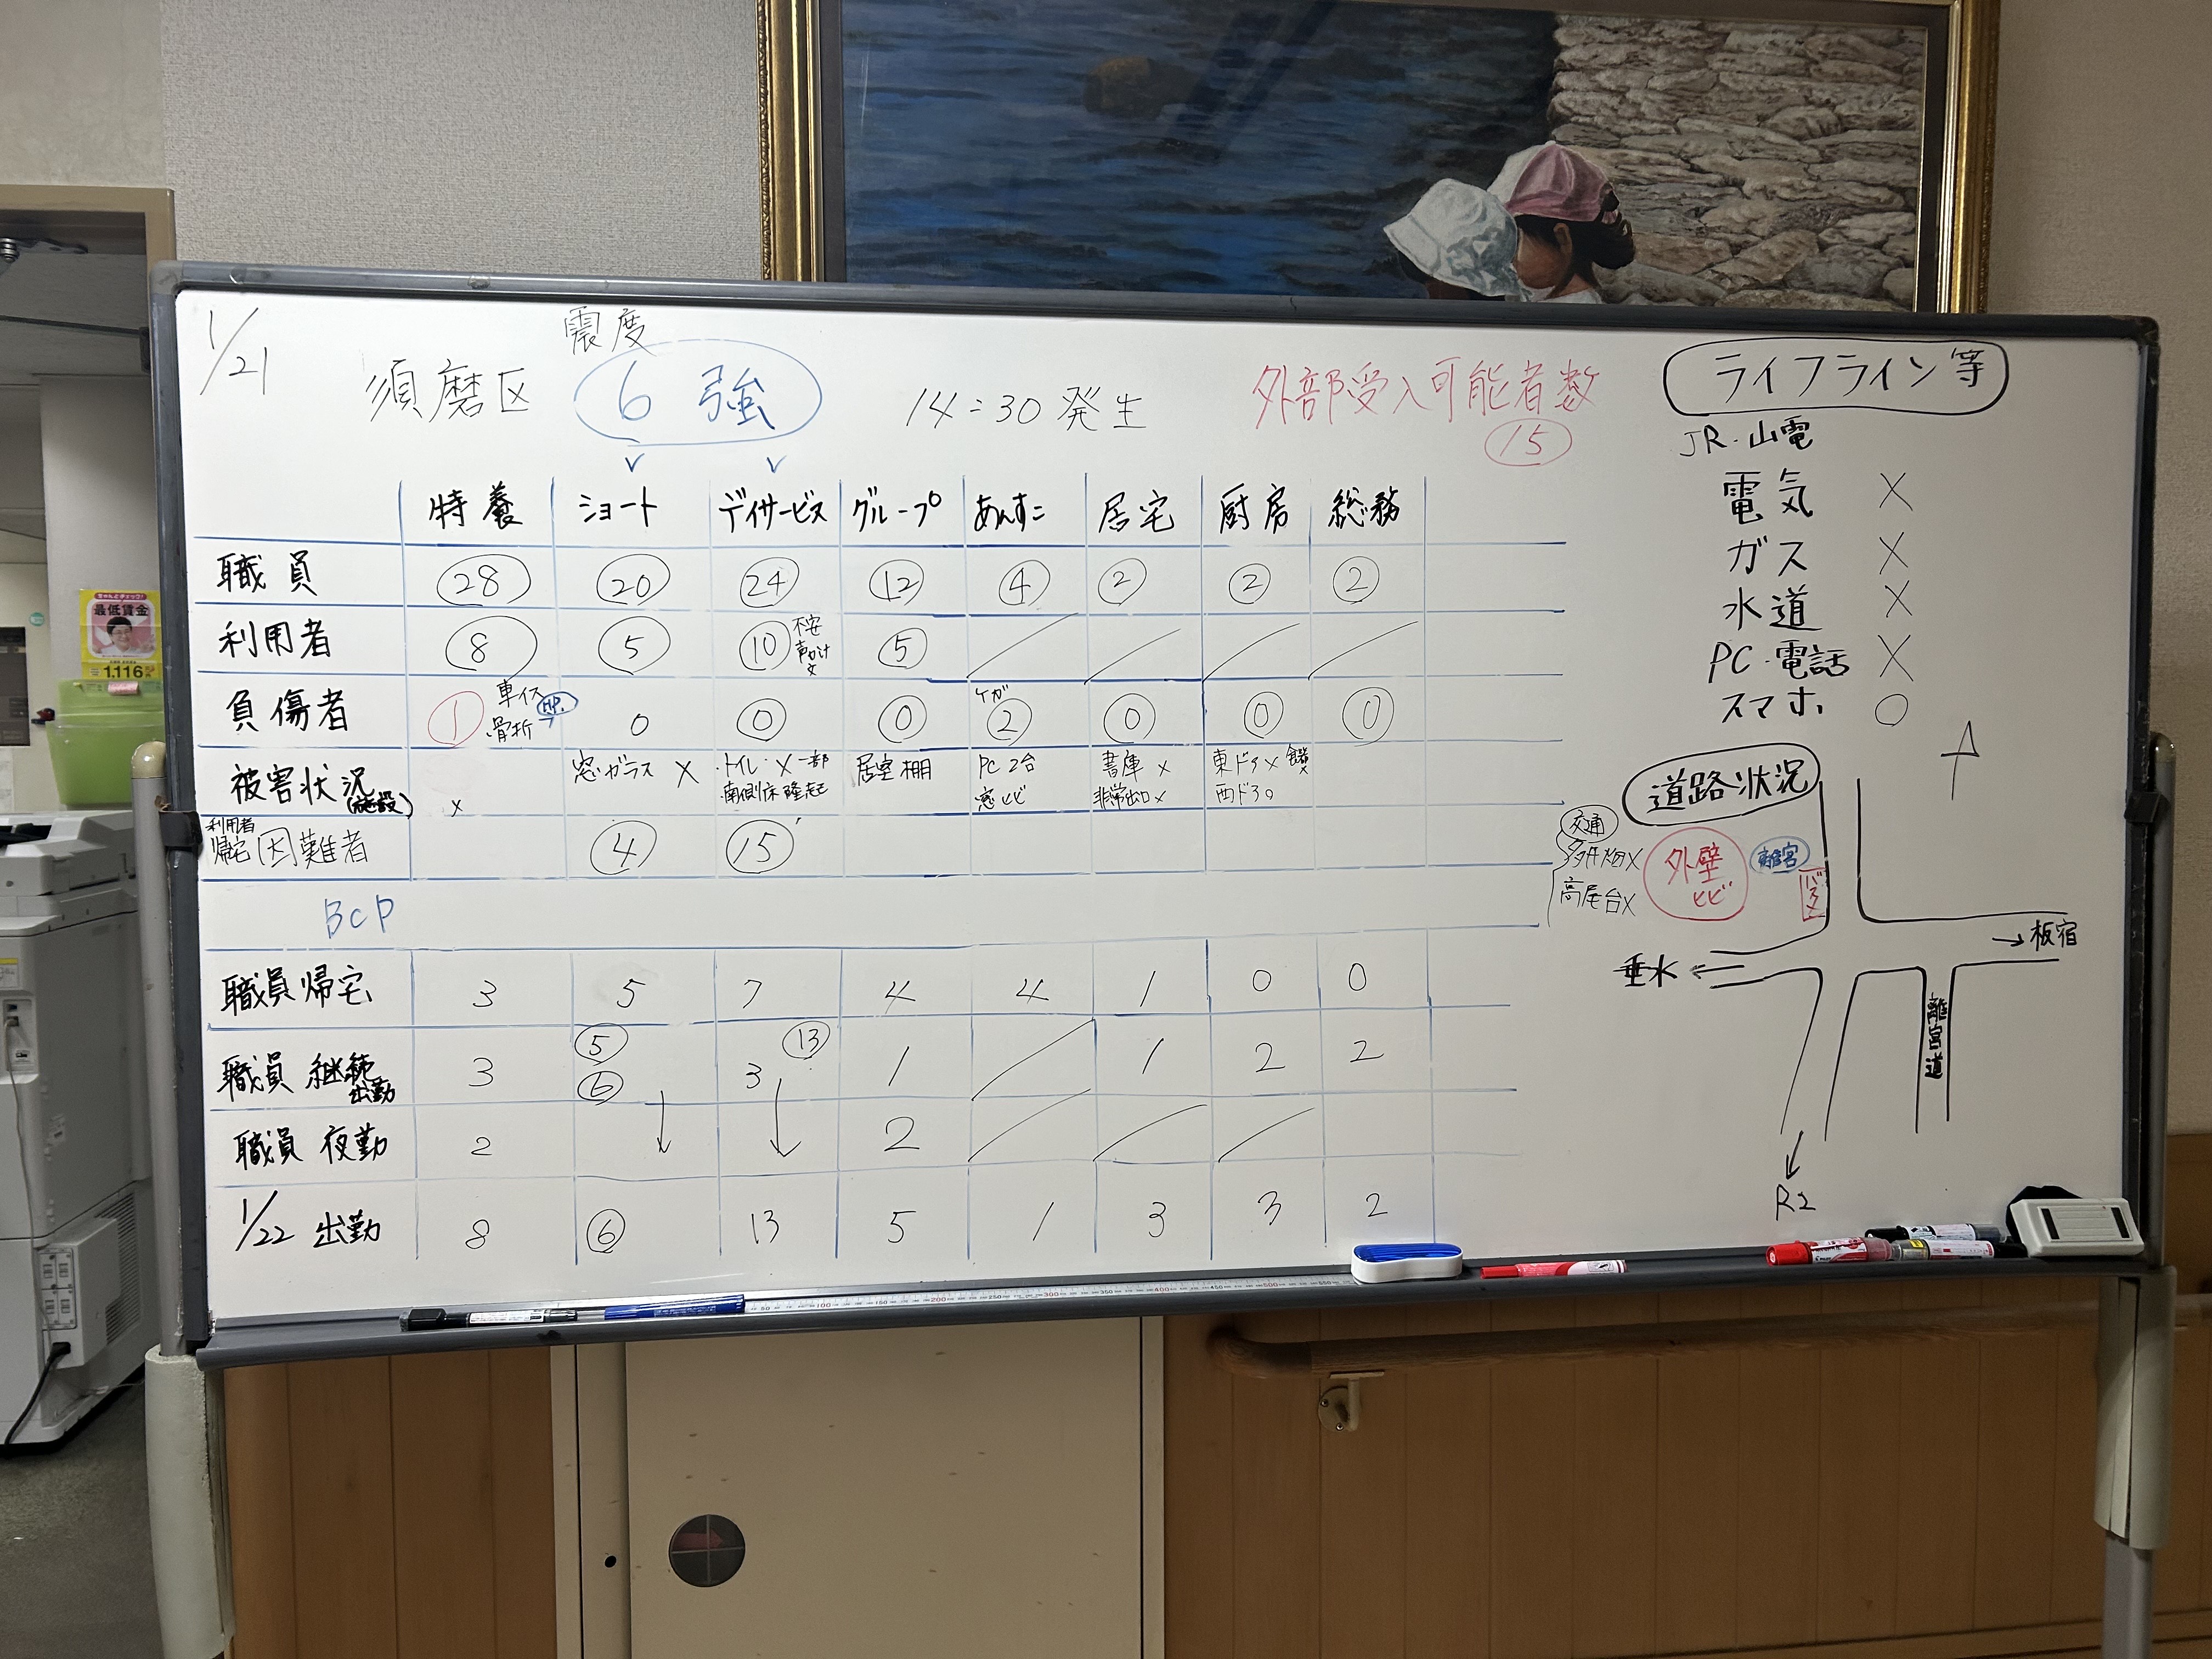 1/21
震度
須磨区 6強 14:30発生
外部受入可能者数
15
特養 ショート デイサービス グループ あんすこ 居宅 厨房 総務
職員 28 20 24 12 4 2 2 2
利用者 8 5 10 不安 声かけ 5
負傷者 1 車イス 骨折 → HP. 0 0 0 ケガ 2 0 0 0
被害状況(施設) × 窓ガラス × ・トイレ・×一部 居室棚 PC2台 書庫× 東ドア×
・南側床隆起 窓ヒビ 非常出口× 西ドア○
利用者
帰宅困難者 4 15
BCP
職員帰宅 3 5 7 4 4 1 0 0
職員 継続出勤 3 5 6 3 13 1 1 2 2
職員 夜勤 2 2
1/22 出勤 8 6 13 5 1 3 3 2
ライフライン等
JR・山電
電気 ×
ガス ×
水道 ×
PC・電話 ×
スマホ ○
道路状況
交通
多井畑×
高尾台×
外壁ヒビ
離宮
バス
→板宿
垂水←
離宮道
R2
最低賃金
1,116